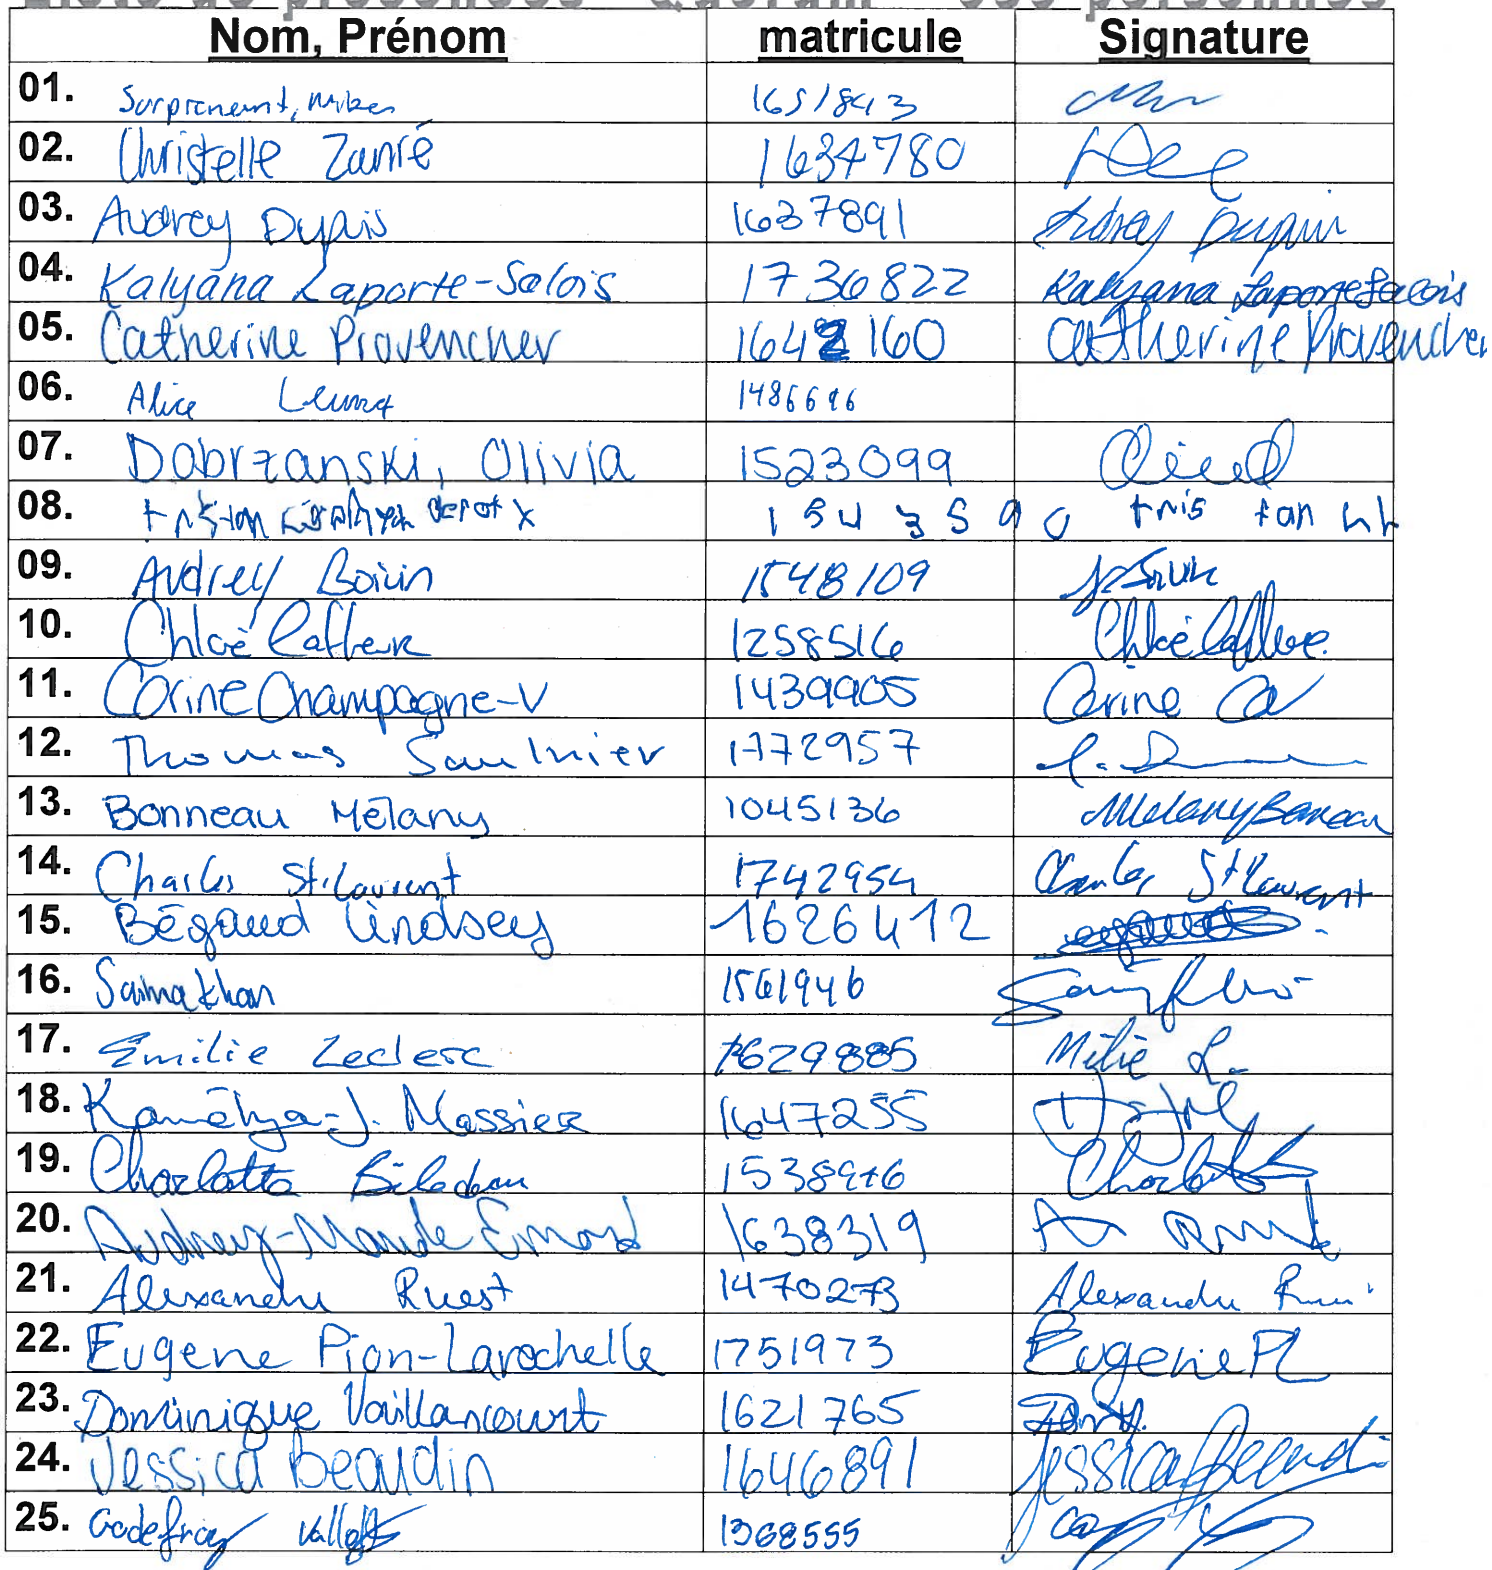 Nom, Prénom matricule Signature
01. Surprenant, 1651843
02. Christelle Zanré 1634780
03. Audrey Dupuis 1637891 Audrey Dupuis
04. Kalyana Laporte-Salois 1736822 Kalyana Laporte Salois
05. Catherine Provencher 1642160 Catherine Provencher
06. Alice 1486696
07. Dobrzanski, Olivia 1523099
08. 1543590
09. Audrey Boivin 1548109
10. Chloé Lafleur 1258516 Chloé Lafleur
11. Corine Champagne-V 1439905 Corine CV
12. Thomas Saulnier 1772957
13. Bonneau Mélany 1045136 Mélany Bonneau
14. Charles St-Laurent 1742954 Charles St-Laurent
15. Bégaud Lindsey 1626412
16. Saima Khan 1561946
17. Emilie Leclerc 1629885 Milie L.
18. 1647255
19. Charlotte Bilodeau 1538976 Charlotte
20. Audrey-Maude Emond 1638319
21. Alexandre Ruest 1470273 Alexandre
22. Eugenie Pion-Larochelle 1751973 Eugenie PL
23. Dominique Vaillancourt 1621765
24. Jessica Beaudin 1646891 Jessica Beaudin
25. Godefroy 1368555